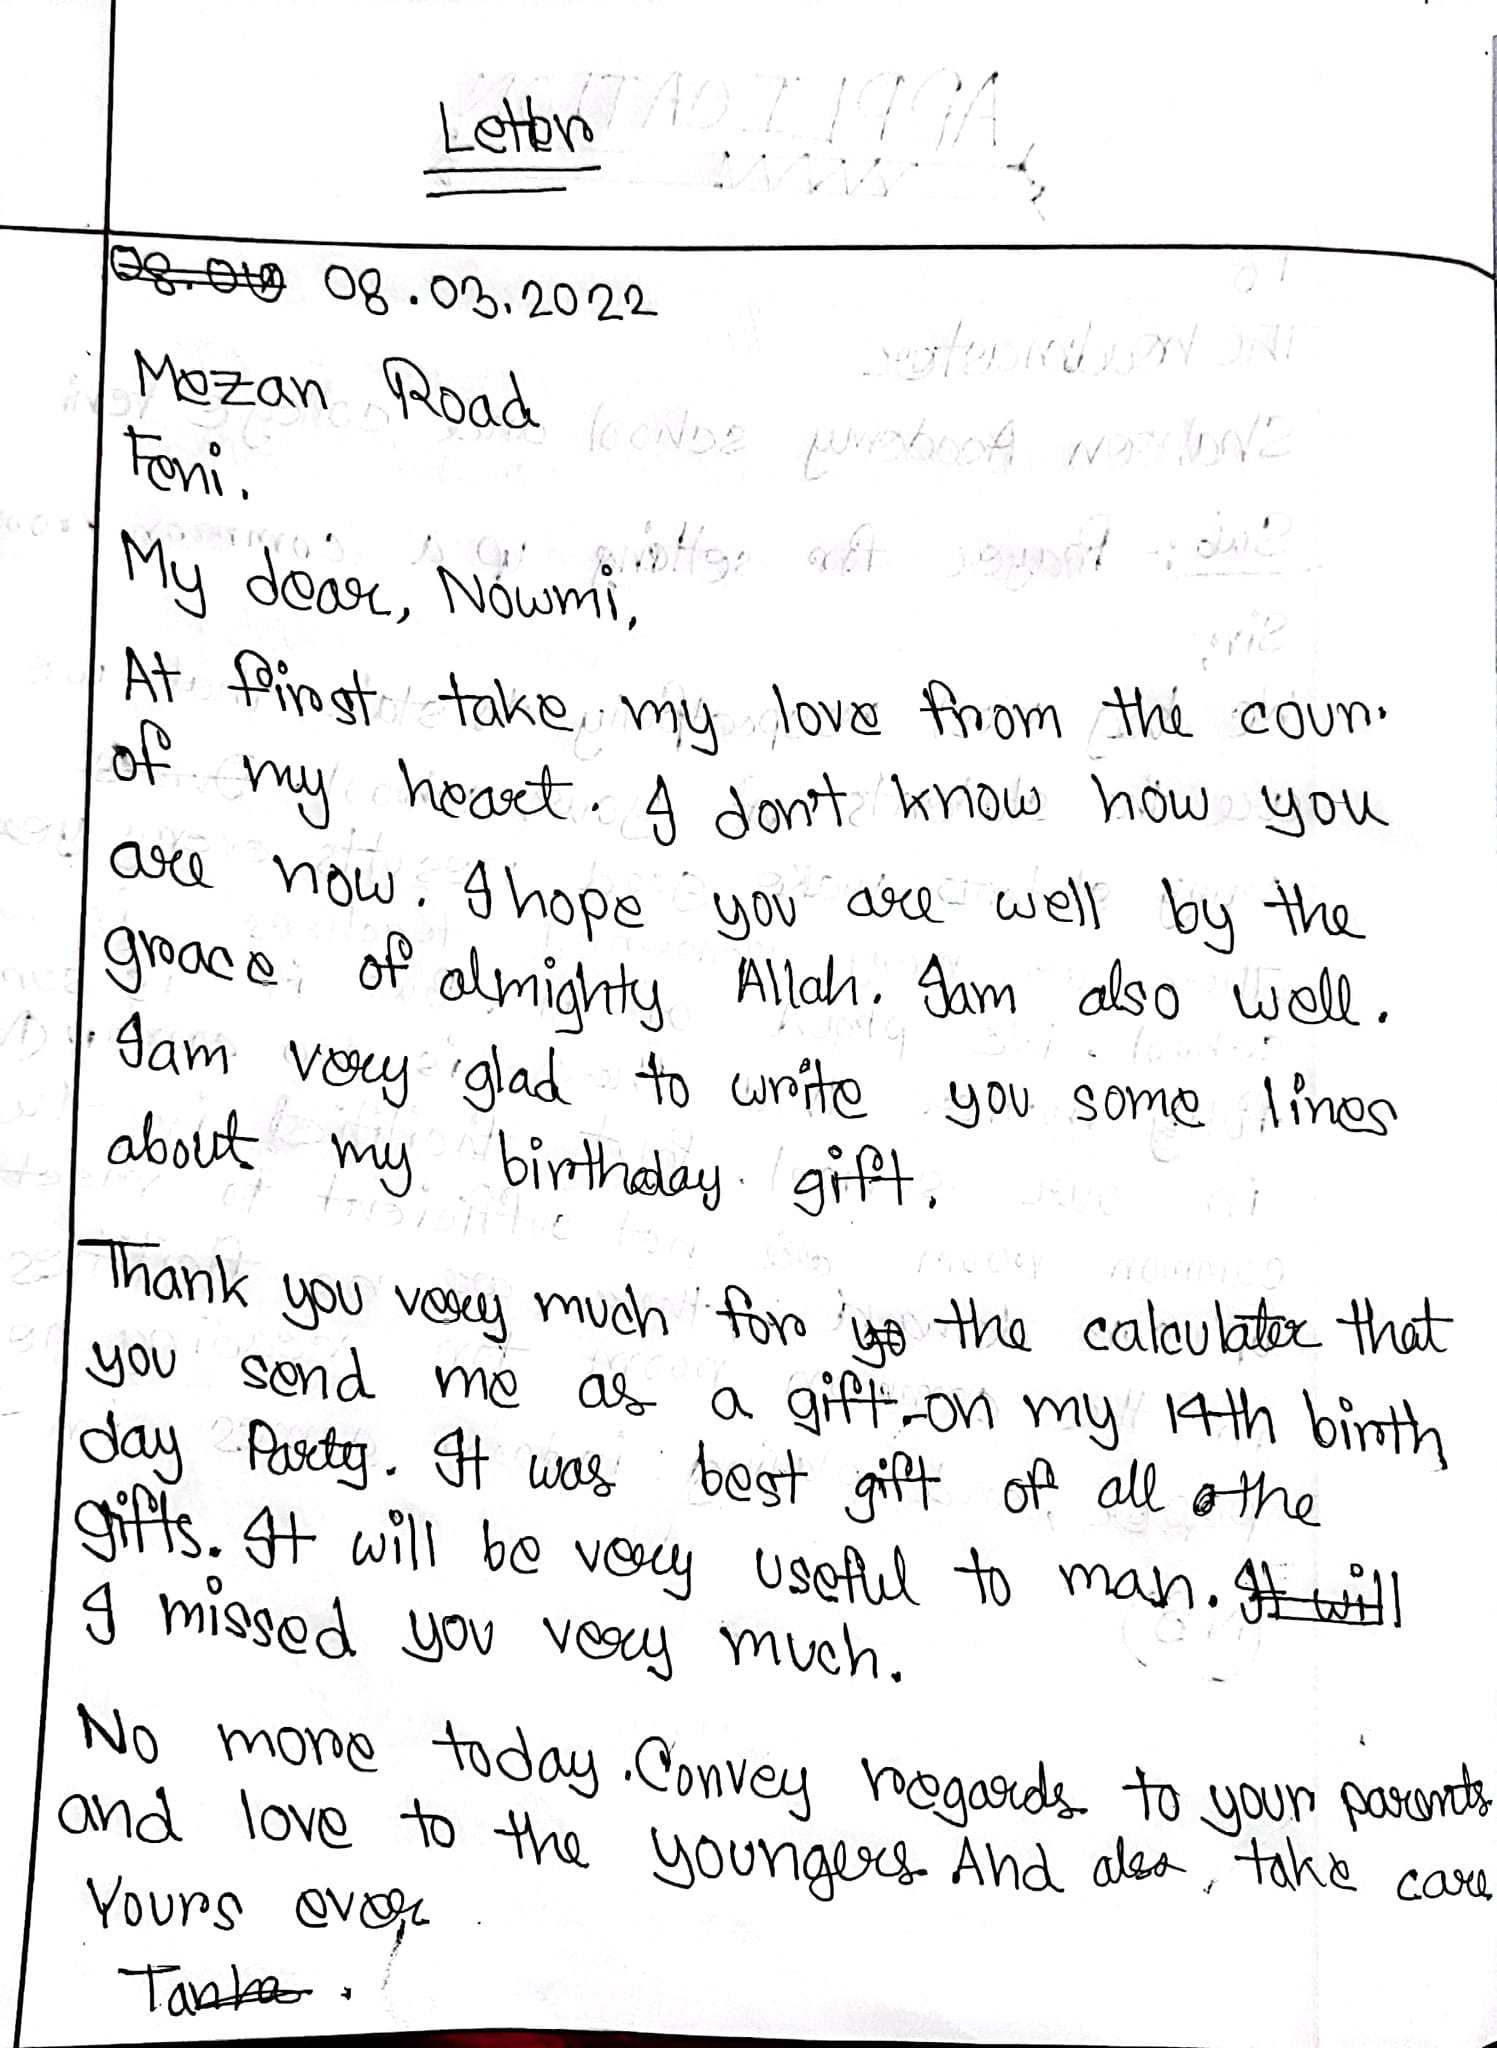 Letter
08.03.2022
Mezan Road
Feni.
My dear, Nowmi,
At first take my love from the coun.
of my heart. I don't know how you
are now. I hope you are well by the
grace of almighty Allah. I am also well.
I am very glad to write you some lines
about my birthday gift.
Thank you very much for the calculater that
you send me as a gift on my 14th birth
day Party. It was best gift of all the
gifts. It will be very useful to man.
I missed you very much.
No more today. Convey regards to your parents
and love to the youngers. And also, take care
Yours ever